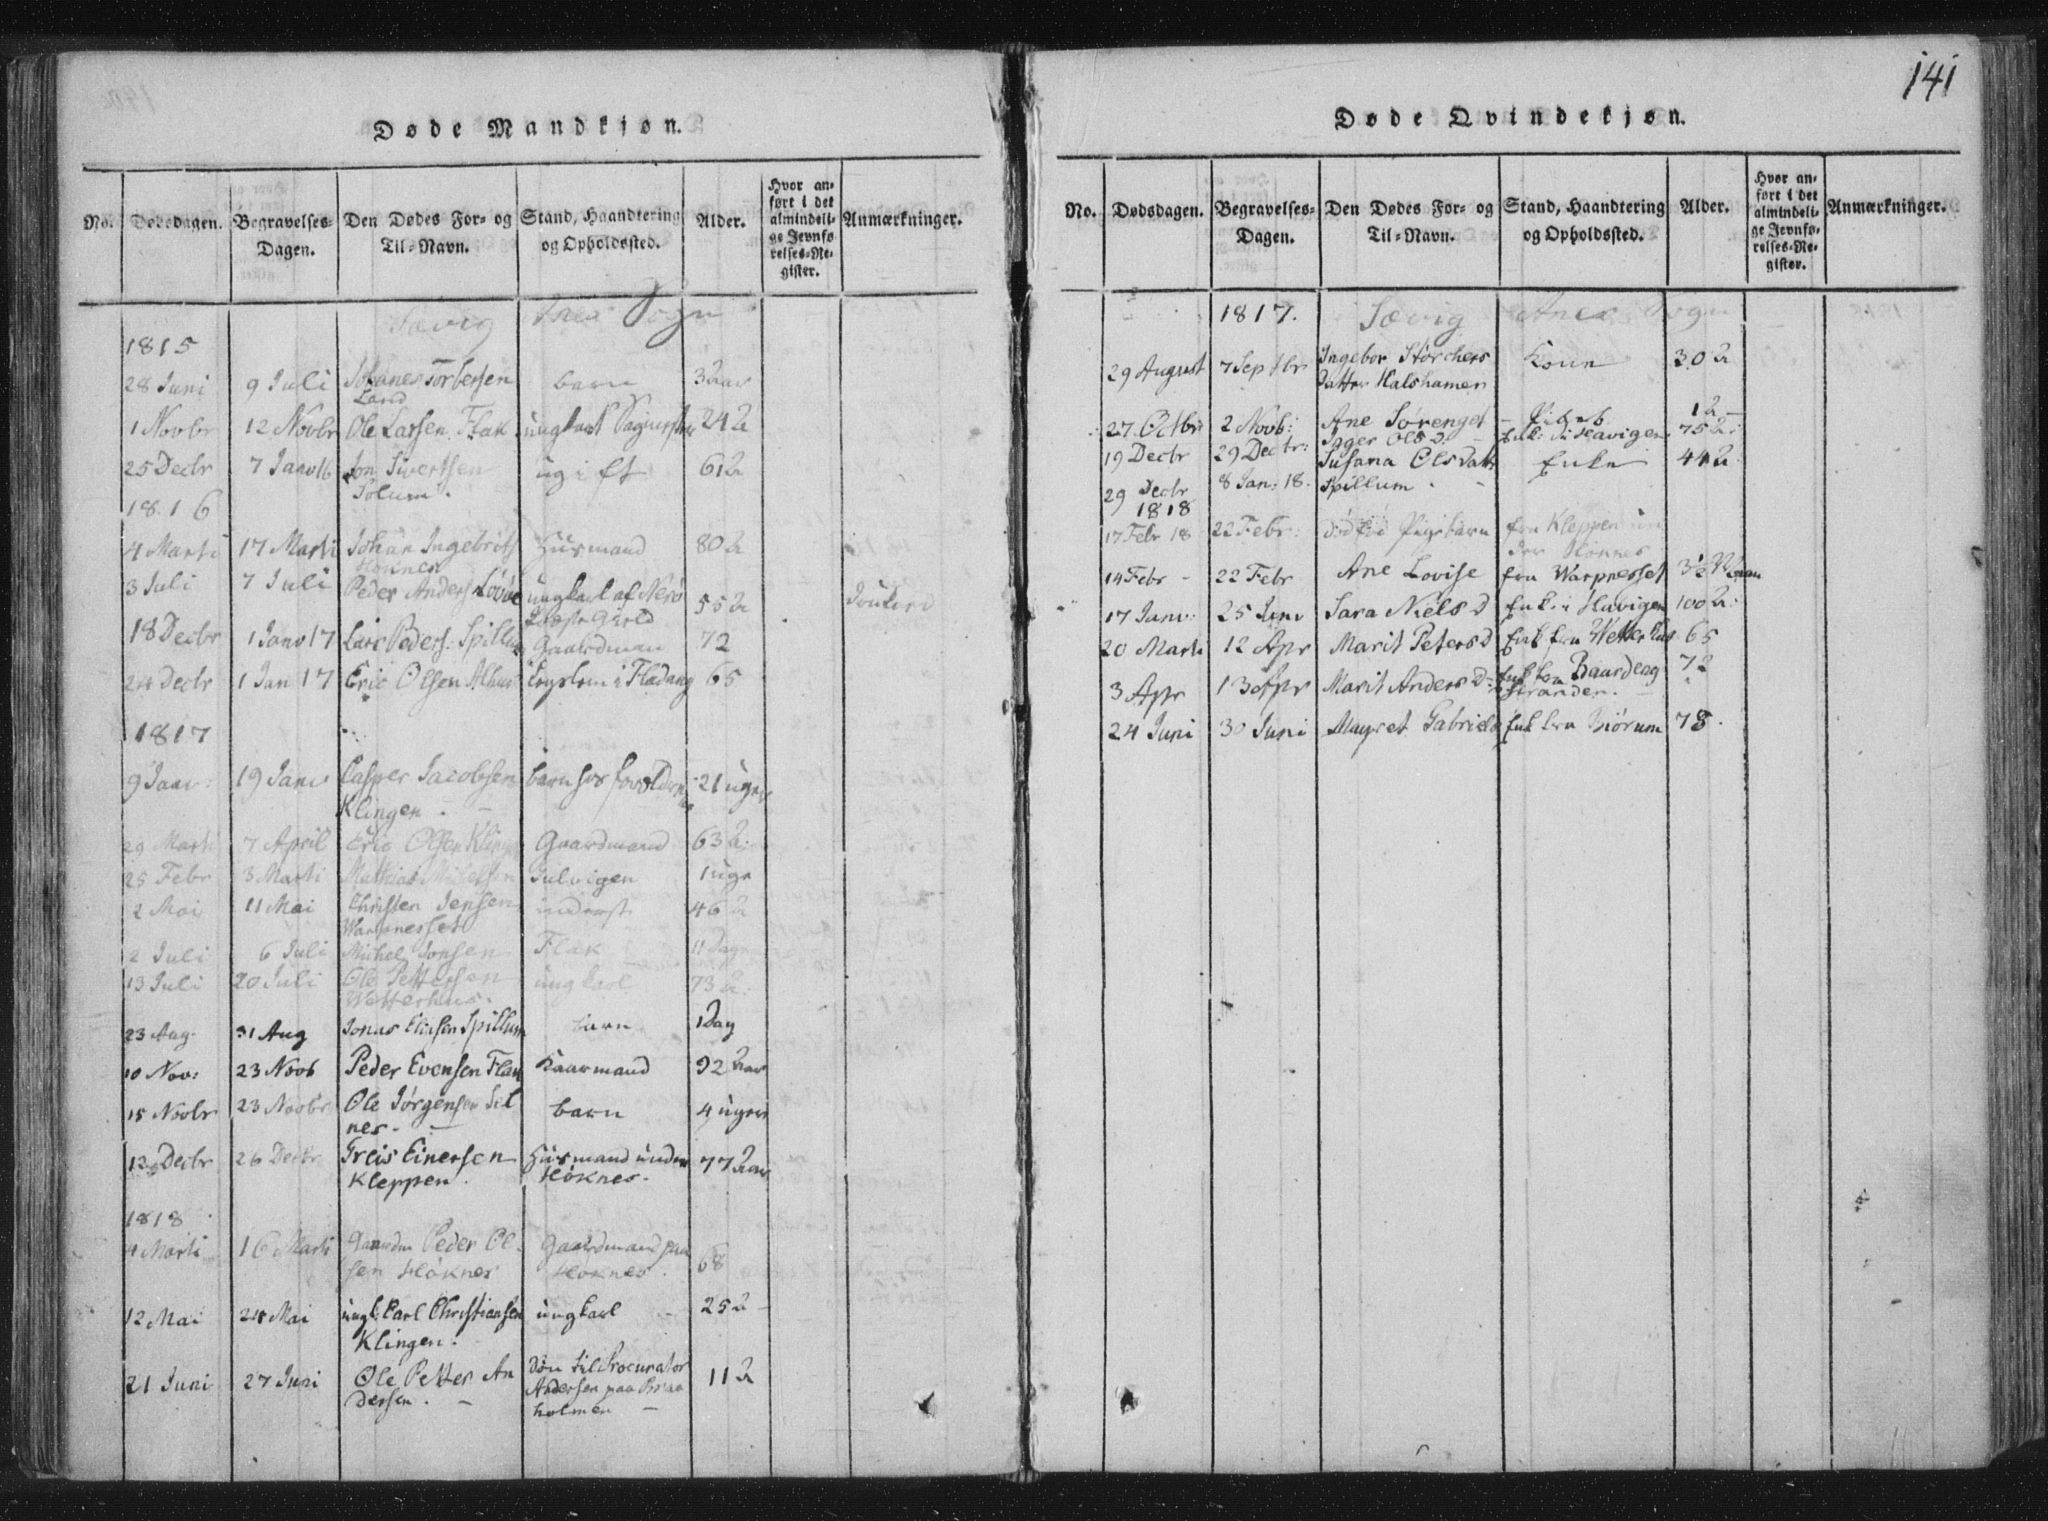 Døde Mandkjøn.
No. Dødsdagen. Begravelses-Dagen. Den Dødes For- og Til-Navn. Stand, Haandtering og Opholdssted. Alder. Hvor anført i det almindelige Jevnførelses-Register. Anmærkninger.
Sævig Anex Sogn
1815
28 Juni 9 Juli Johanes Torbersen barn 3 aar
Land
1 Novbr 12 Novbr Ole Larsen Flak ungkarl 24 A
25 Decbr 7 Janv 16 Jon Sivertsen ugift 61 A
Solum.
1816
4 Marti 17 Marti Johan Ingebrits Husmand 80 A
Høknes
3 Juli 7 Juli Peder Anders ungkarl af Nerö 55 A
18 Decbr 1 Janv 17 Lars Peders. Spillum Gaardman 72
24 Decbr 1 Jan 17 Eric Olsen Alhus i Fladang 65
1817
9 Janv: 19 Janv Casper Jacobsen barn hos forældrene 21 uger
Klingen.
29 Marti 7 April Eric Olsen Klingen Gaardmand 63 A:
25 Febr 3 Marti Mathias Julvigen 1 uge
2 Mai 11 Mai Christen Jensen inderst 46 A
Warpnesset
2 Juli 6 Juli Michel Jonsen Flak 11 Dage
13 Juli 20 Juli Ole Pettersen ungkarl 73 A:
Wetterhus.
23 Aug. 31 Aug Jonas Eliasen Spillum barn 1 Dag
10 Nov: 23 Novb Peder Evensen Flak Kaarmand 92 Aar
15 Novbr 23 Novbr Ole Jørgensen Sel barn 4 uger
nes.
12 Decbr 26 Decbr Greis Einersen Husmand under 77 Aar
Kleppen. Høknes.
1818
4 Marti 16 Marti Gaardm Peder Ol- Gaardmand paa 68
sen Høknes Høknes.
12 Mai 24 Mai ungk. Carl Christiansen ungkarl 25 A
Klingen.
21 Juni 27 Juni Ole Petter An Søn til Procurator 11 A
dersen. Andersen paa Braa
holmen
141
Døde Qvindekjøn.
No. Dødsdagen. Begravelses-Dagen. Den Dødes For- og Til-Navn. Stand, Haandtering og Opholdssted. Alder. Hvor anført i det almindelige Jevnførelses-Register. Anmærkninger.
1817. Sævig Anex Sogn
29 August 7 Septbr Ingebor Størchers Kone 30 A
Datter Halshamer
27 Octbr 2 Novb: Ane Sørenget Pigeb 1 A
19 Decbr 29 Decbr: Ols D. Enke i Havigen 75 A:
29 Decbr 8 Jan: 18. Susana Olsdatt Enke 44 A
Spillum.
1818
17 Febr 18 22 Febr: dødfød Pigebarn fra Kleppen un
der Høknes
14 Febr 22 Febr Ane Lovise fra Warpnesset 3½
17 Janv: 25 Janv Sara Niels D Enke i Havigen 100 A:
20 Marti 12 Apr Marit Peters D Enk fra Wetterhus 65
3 Apr 13 Apr Marit Anders D: Enk fra Baardeng 72
stranden.
24 Juni 30 Juni Mayret Gabriels Enk fra Biörum 78.